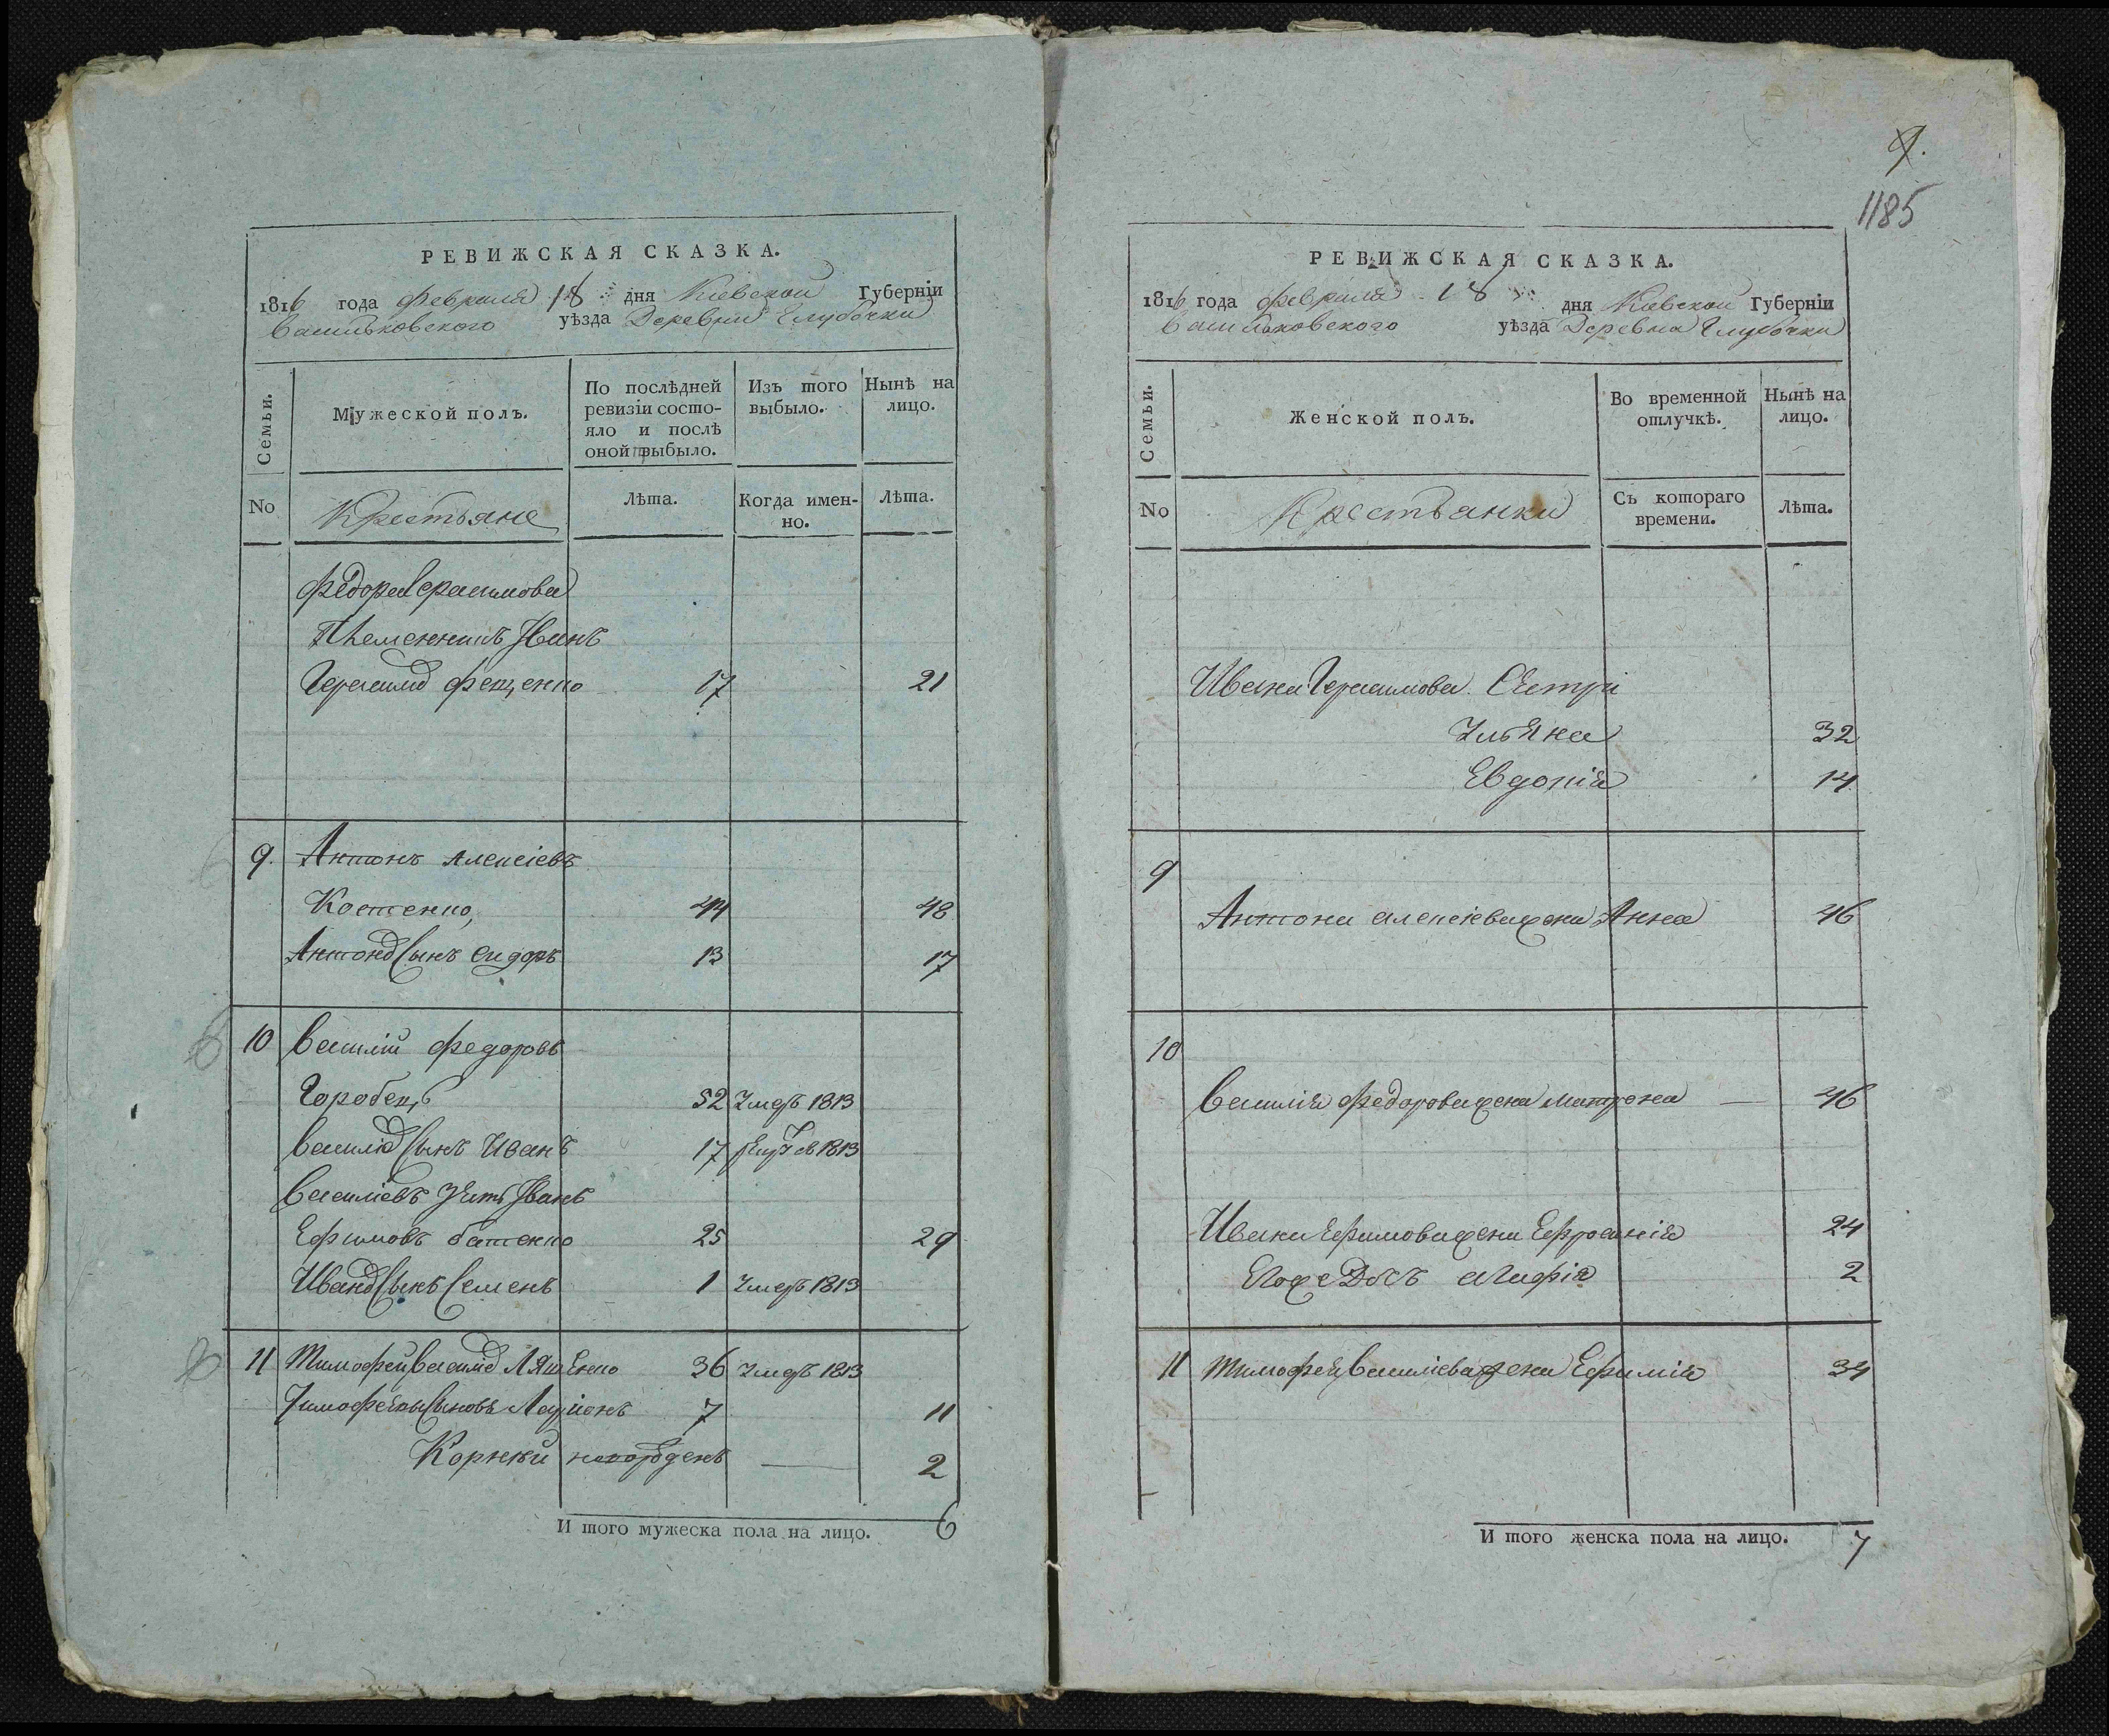 РЕВИЖСКАЯ СКАЗКА.
1816 года февраля 18 дня Киевской Губерніи
Васильковского уѣзда Деревни Глубочки
Семьи.
Мужеской полъ.
По послѣдней ревизіи состояло и послѣ оной прыбыло.
Изъ того выбыло.
Нынѣ на лицо.
No
Крестьяне
Лѣта.
Когда именно.
Лѣта.
Федора Герасимова
Племенникъ Иванъ
Герасимов Фещенко 17 21
9. Антонъ Алексіевъ
Костенко, 44 48
Антонов Сынъ Сидоръ 13 17
10 Василій Федоровъ
Горобецъ 52 Умеръ 1813
Василіев Сынъ Иванъ 17 1813
Василіевъ Зять Иванъ
Ефимовъ Батенко 25 29
Иванов Сынъ Семенъ 1 Умеръ 1813
11 Тимофей Василіев Ляшенко 36 Умеръ 1813
Тимофеевы Сыновъ Ларіонъ 7 11
Корнѣй новорожденъ — 2
И того мужеска пола на лицо. 6
9.
1185
РЕВИЖСКАЯ СКАЗКА.
1816 года февраля 18 дня Киевской Губерніи
Васильковского уѣзда Деревна Глубочки
Семьи.
Женской полъ.
Во временной отлучкѣ.
Нынѣ на лицо.
No
Крестьанки
Съ котораго времени.
Лѣта.
Ивана Герасимова Сѣстри
Ульяна 32
Евдокія 14
9
Антона Алексіева жена Анна 46
10
Василія Федорова жена Матрона — 46
Ивана Ефимова жена Ефросинія 24
Его же Дочъ Агафія 2
11 Тимофея Василіева жена Ефимія 34
И того женска пола на лицо. 7